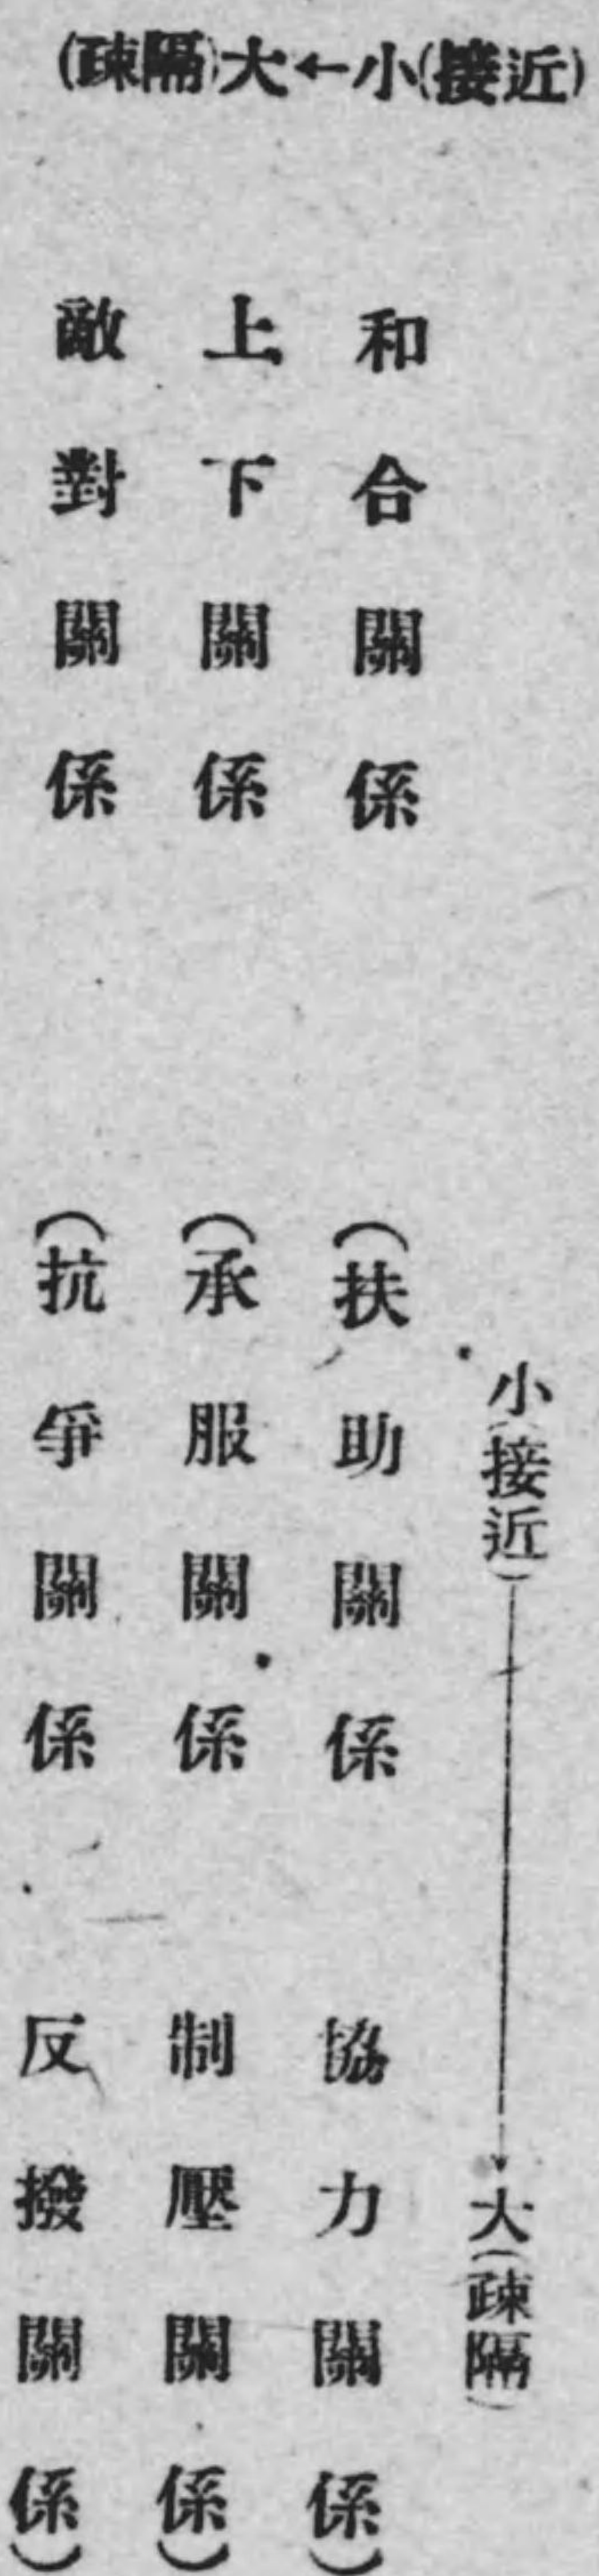 (疎隔)大←小(接近)
小(接近)→大(疎隔)
和合關係 (扶助關係 協力關係)
上下關係 (承服關係 制壓關係)
敵對關係 (抗爭關係 反撥關係)